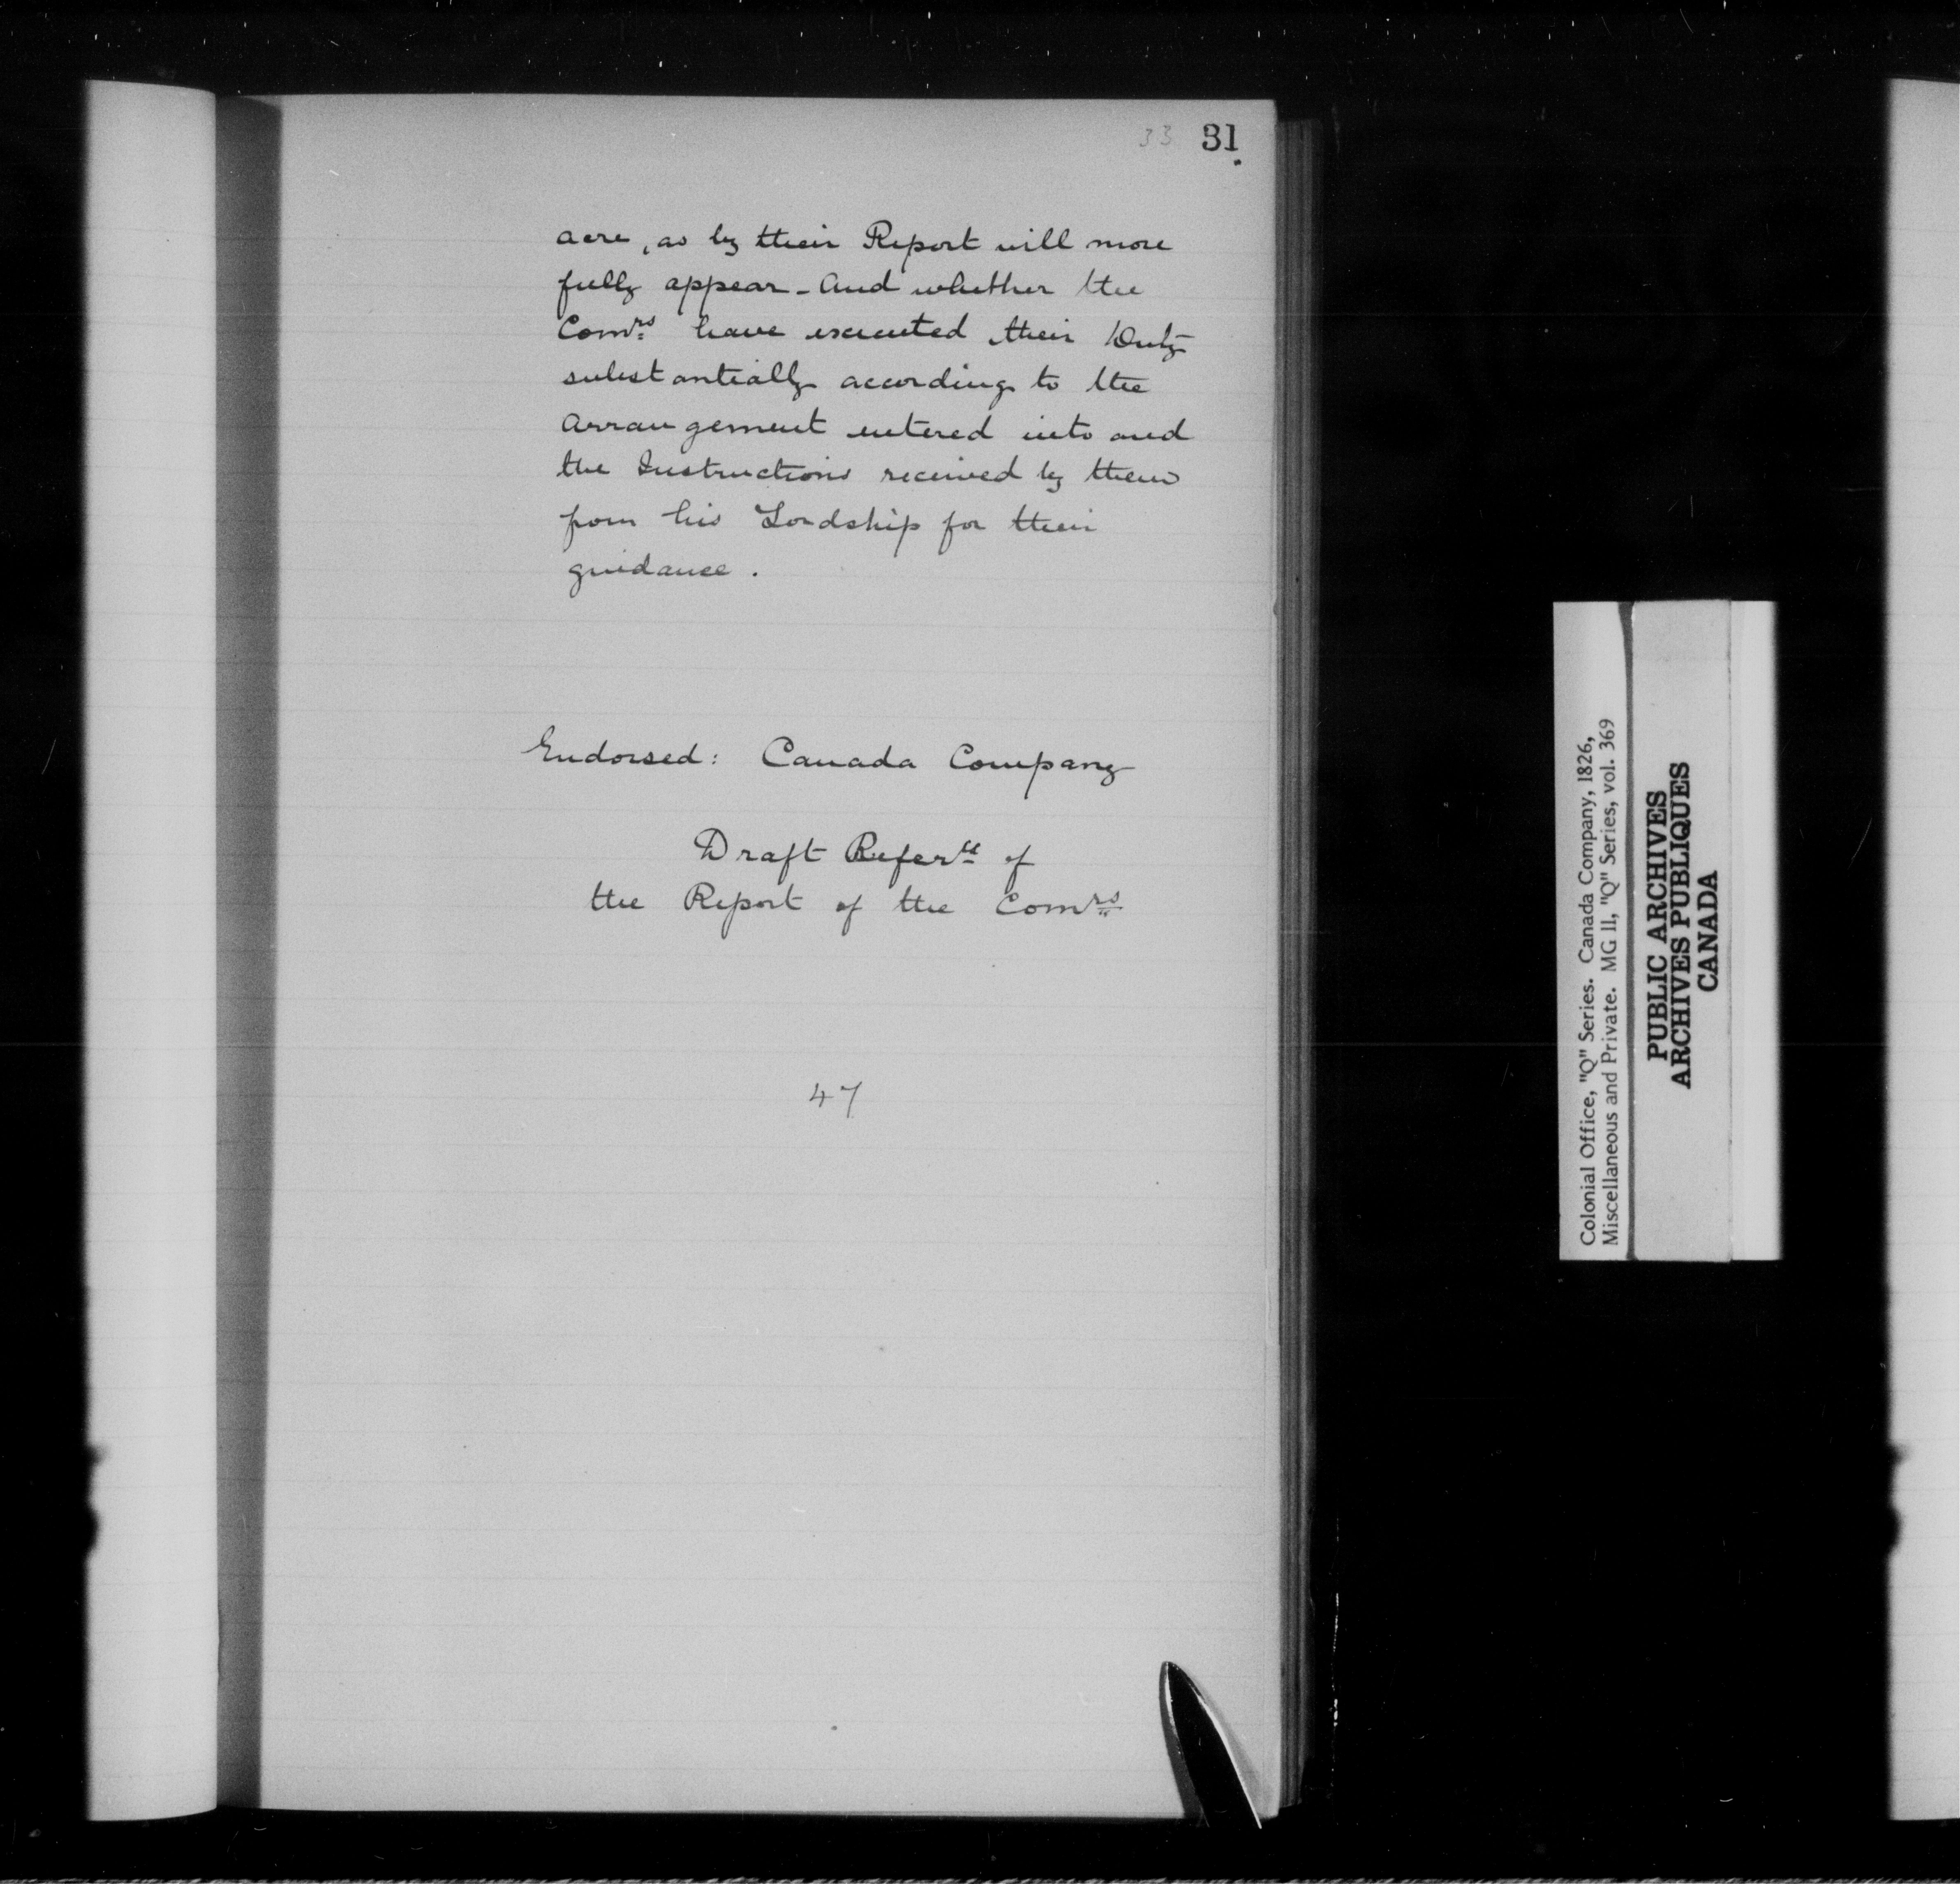 33 31
acre, as by their Report will more
fully appear - And whether the
Comrs have executed their Duty
substantially according to the
Arrangement entered into and
the Instructions received by them
from his Lordship for their
guidance.
Endorsed: Canada Company
Draft Referce of
the Report of the Comrs
47
Colonial Office, "Q" Series. Canada Company, 1826,
Miscellaneous and Private. MG 11, "Q" Series, vol. 369
PUBLIC ARCHIVES
ARCHIVES PUBLIQUES
CANADA